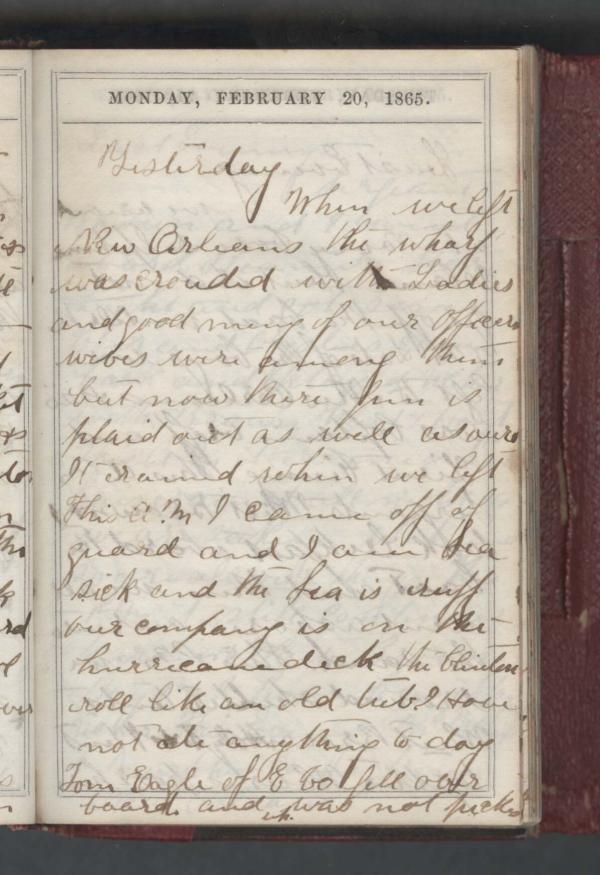 MONDAY, FEBRUARY 20, 1865.
Yesterday
When we left
New Orleans the wharf
was crouded with Ladies
and good many of our officers
wives were among them
but now there fun is
plaid out as well as ours
It rained when we left
This A.M I came off of
guard and I am Sea
sick and the Sea is ruff
our company is on the
hurricane deck the Clinton
roll like an old tub I Have
not ate anything to day
Tom Eagle of E Co fell over
board and was not picked
up.